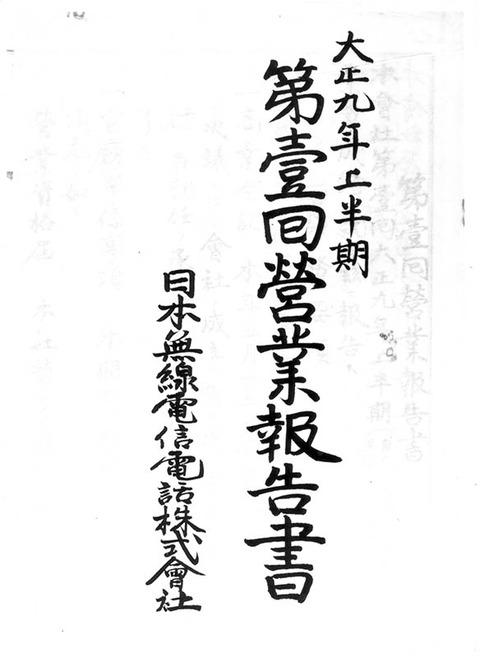 大正九年上半期
第壹回營業報告書
日本無線電信電話株式會社